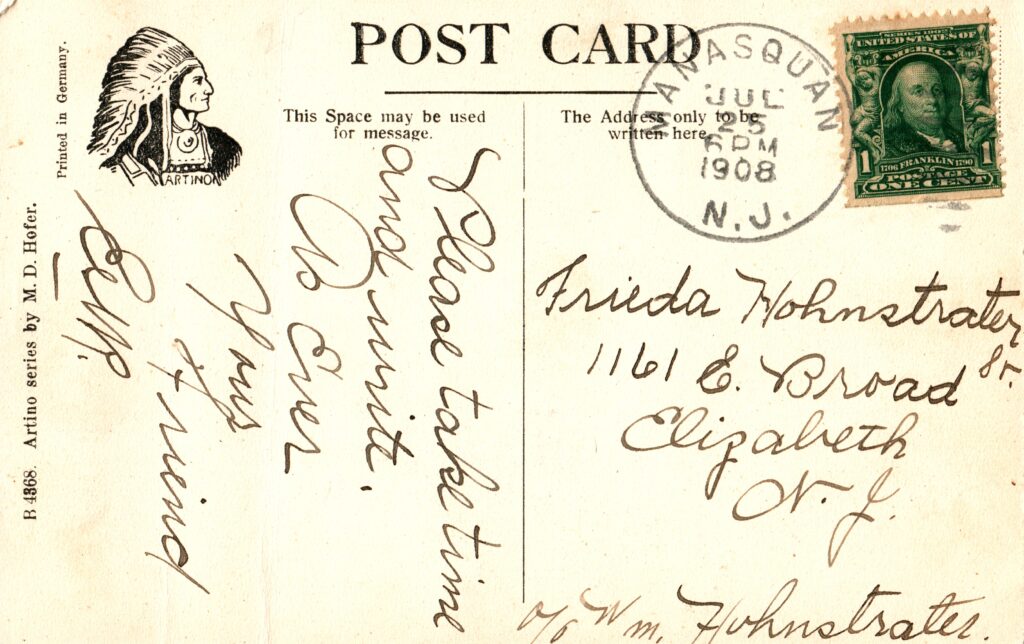 POST CARD
Printed in Germany.
ARTINO
B 4368. Artino series by M. D. Hofer.
This Space may be used
for message.
The Address only to be
written here.
MANASQUAN
JUL
25
6 PM
1908
N.J.
SERIES 1902
UNITED STATES OF
AMERICA
1706 FRANKLIN 1790
1 1
POSTAGE
ONE CENT
Please take time
and write.
As Ever
Your
Freind
Frieda Hohnstrater
1161 E. Broad St.
Elizabeth
N. J.
c/o Wm. Hohnstrater